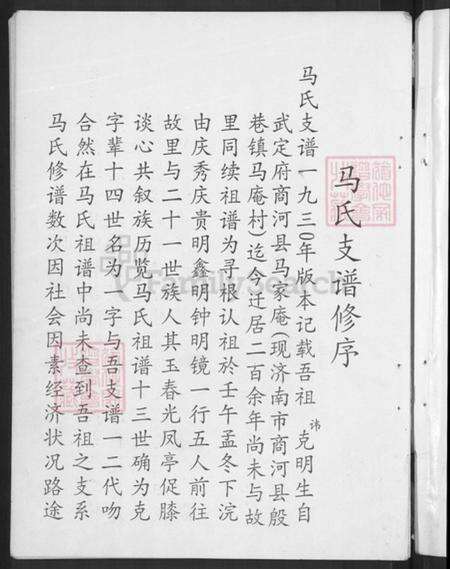 马氏支谱修序
马氏支谱一九三0年版本记载吾祖讳克明生自
武定府商河县马家庵(现济南市商河县殷
巷镇马庵村)迄今迁居二百余年尚未与故
里同续祖谱为寻根认祖於壬午孟冬下浣
由庆秀庆贵明鑫明钟明镜一行五人前往
故里与二十一世族人其玉春光凤亭促膝
谈心共叙族历览马氏祖谱十三世确为克
字辈十四世名为一字与吾支谱一二代吻
合然在马氏祖谱中尚未查到吾祖之支系
马氏修谱数次因社会因素经济状况路途
FamilySearch